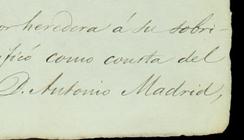 or heredera á su sobri-
ificó como consta del
D. Antonio Madrid,